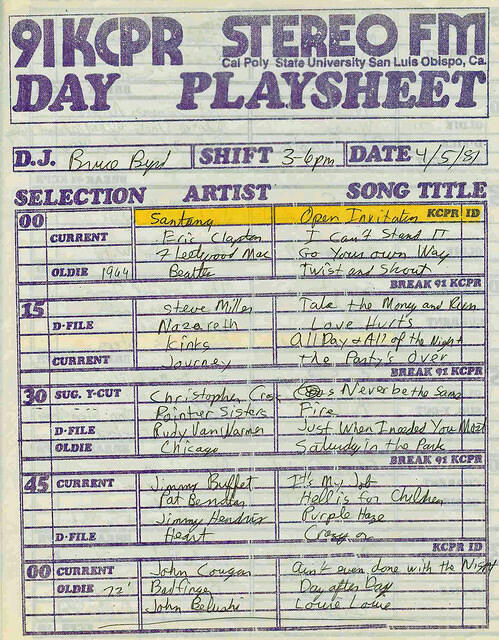 91 KCPR STEREO FM
Cal Poly State University San Luis Obispo, Ca.
DAY PLAYSHEET
D.J. Bruce Byrd SHIFT 3-6pm DATE 4/5/81
SELECTION ARTIST SONG TITLE
00 Santana Open Invitation KCPR ID
CURRENT Eric Clapton I Can't Stand IT
Fleetwood Mac Go Your own Way
OLDIE 1964 Beatles Twist and Shout
BREAK 91 KCPR
15 Steve Miller Take the Money and Run
D-FILE Nazareth Love Hurts
Kinks All Day + All of the Night
CURRENT Journey the Party's Over
BREAK 91 KCPR
30 SUG. Y-CUT Christopher Cros Never be the Same
Pointer Sisters Fire
D-FILE Rudy VanWarmer Just When I needed You Most
OLDIE Chicago Saturday in the Park
BREAK 91 KCPR
45 CURRENT Jimmy Buffet It's My Job
Pat Benatar Hell is for Children
Jimmy Hendrix Purple Haze
D-FILE Heart Crazy on
KCPR ID
00 CURRENT John Cougar Ain't even done with the Night
OLDIE 72' Badfinger Day after Day
John Belushi Louie Louie